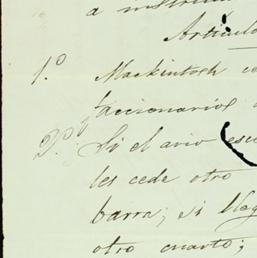 a instrui
Articulo
1.º Mackintosh co
faccionarios
2.º Si el avio esc
les cede otro
barra, si lleg
otro cuarto;